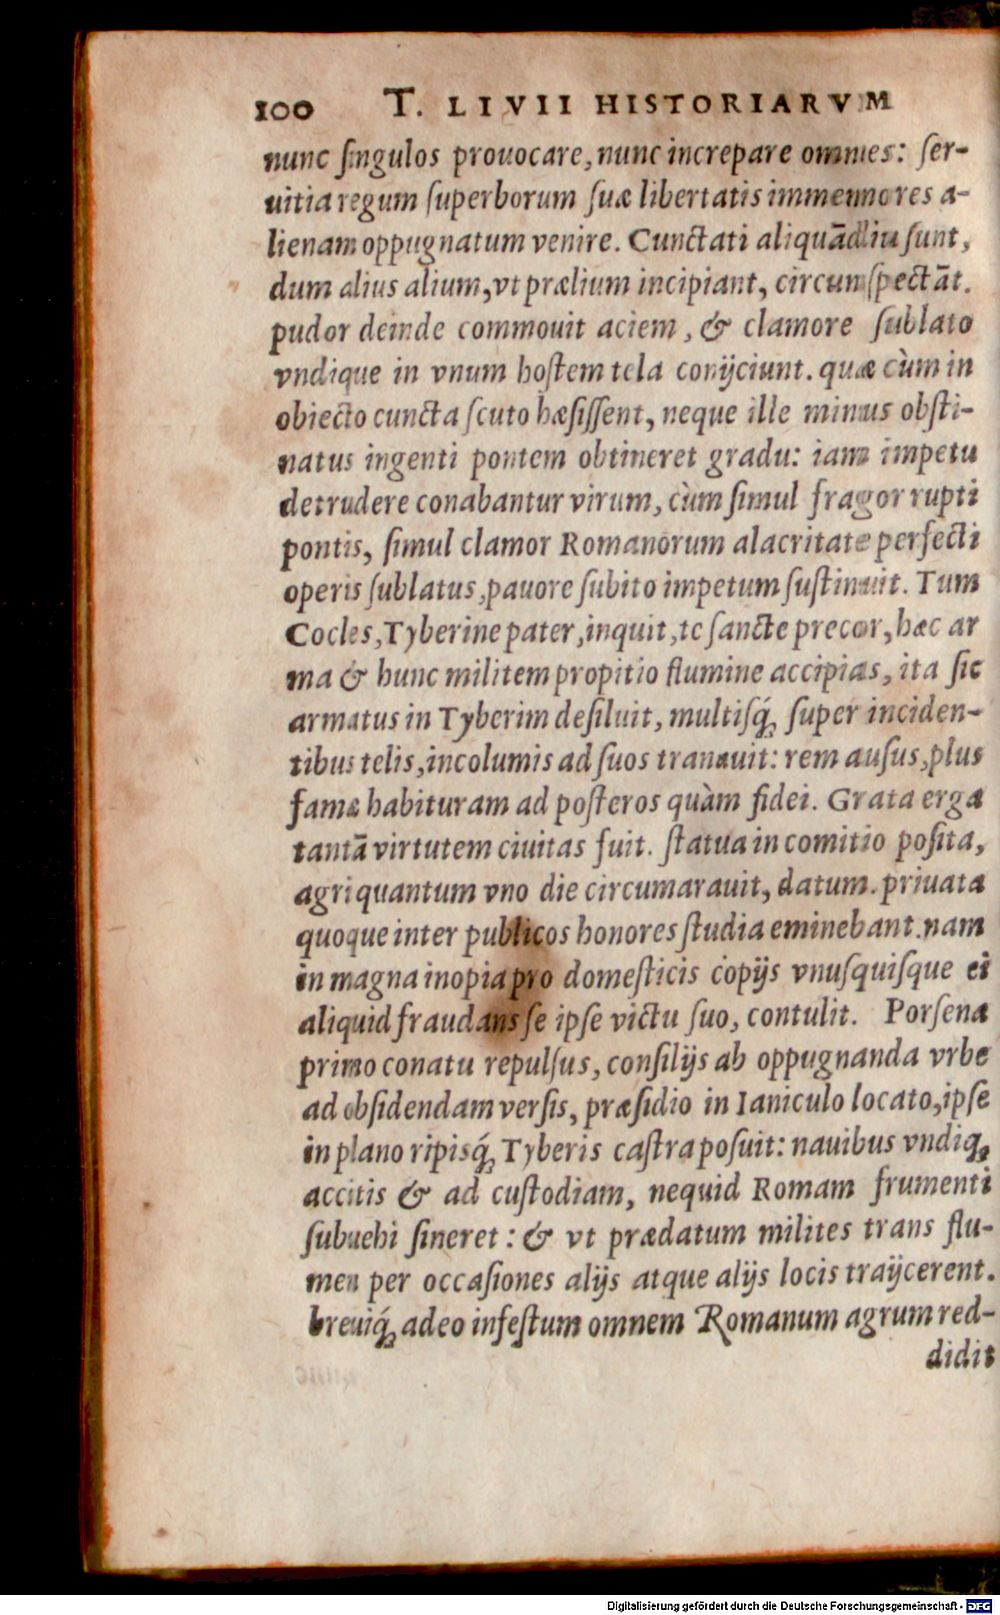 100 T. LIVII HISTORIARVM
nunc ſingulos prouocare, nunc increpare omnes: ſer-
uitia regum ſuperborum ſuæ libertatis immemores a-
lienam oppugnatum venire. Cunctati aliquãdiu ſunt,
dum alius alium, vt prælium incipiant, circumſpectãt.
pudor deinde commouit aciem, & clamore ſublato
vndique in vnum hoſtem tela conijciunt. quæ cùm in
obiecto cuncta ſcuto hæſiſſent, neque ille minus obſti-
natus ingenti pontem obtineret gradu: iam impetu
detrudere conabantur virum, cùm ſimul fragor rupti
pontis, ſimul clamor Romanorum alacritate perfecti
operis ſublatus, pauore ſubito impetum ſuſtinuit. Tum
Cocles, Tyberine pater, inquit, te ſancte precor, hæc ar
ma & hunc militem propitio flumine accipias, ita ſic
armatus in Tyberim deſiluit, multiſq́; ſuper inciden-
tibus telis, incolumis ad ſuos tranauit: rem auſus, plus
famæ habituram ad poſteros quàm fidei. Grata erga
tantã virtutem ciuitas fuit. ſtatua in comitio poſita,
agri quantum vno die circumarauit, datum. priuata
quoque inter publicos honores ſtudia eminebant. nam
in magna inopia pro domeſticis copijs vnuſquiſque ei
aliquid fraudans ſe ipſe victu ſuo, contulit. Porſena
primo conatu repulſus, conſilijs ab oppugnanda vrbe
ad obſidendam verſis, præſidio in Ianiculo locato, ipſe
in plano ripisq́; Tyberis caſtra poſuit: nauibus vndiq;
accitis & ad cuſtodiam, nequid Romam frumenti
ſubuehi ſineret: & vt prædatum milites trans flu-
men per occaſiones alijs atque alijs locis traijcerent.
breuiq́; adeo infeſtum omnem Romanum agrum red-
didit
Digitalisierung gefördert durch die Deutsche Forschungsgemeinschaft - DFG